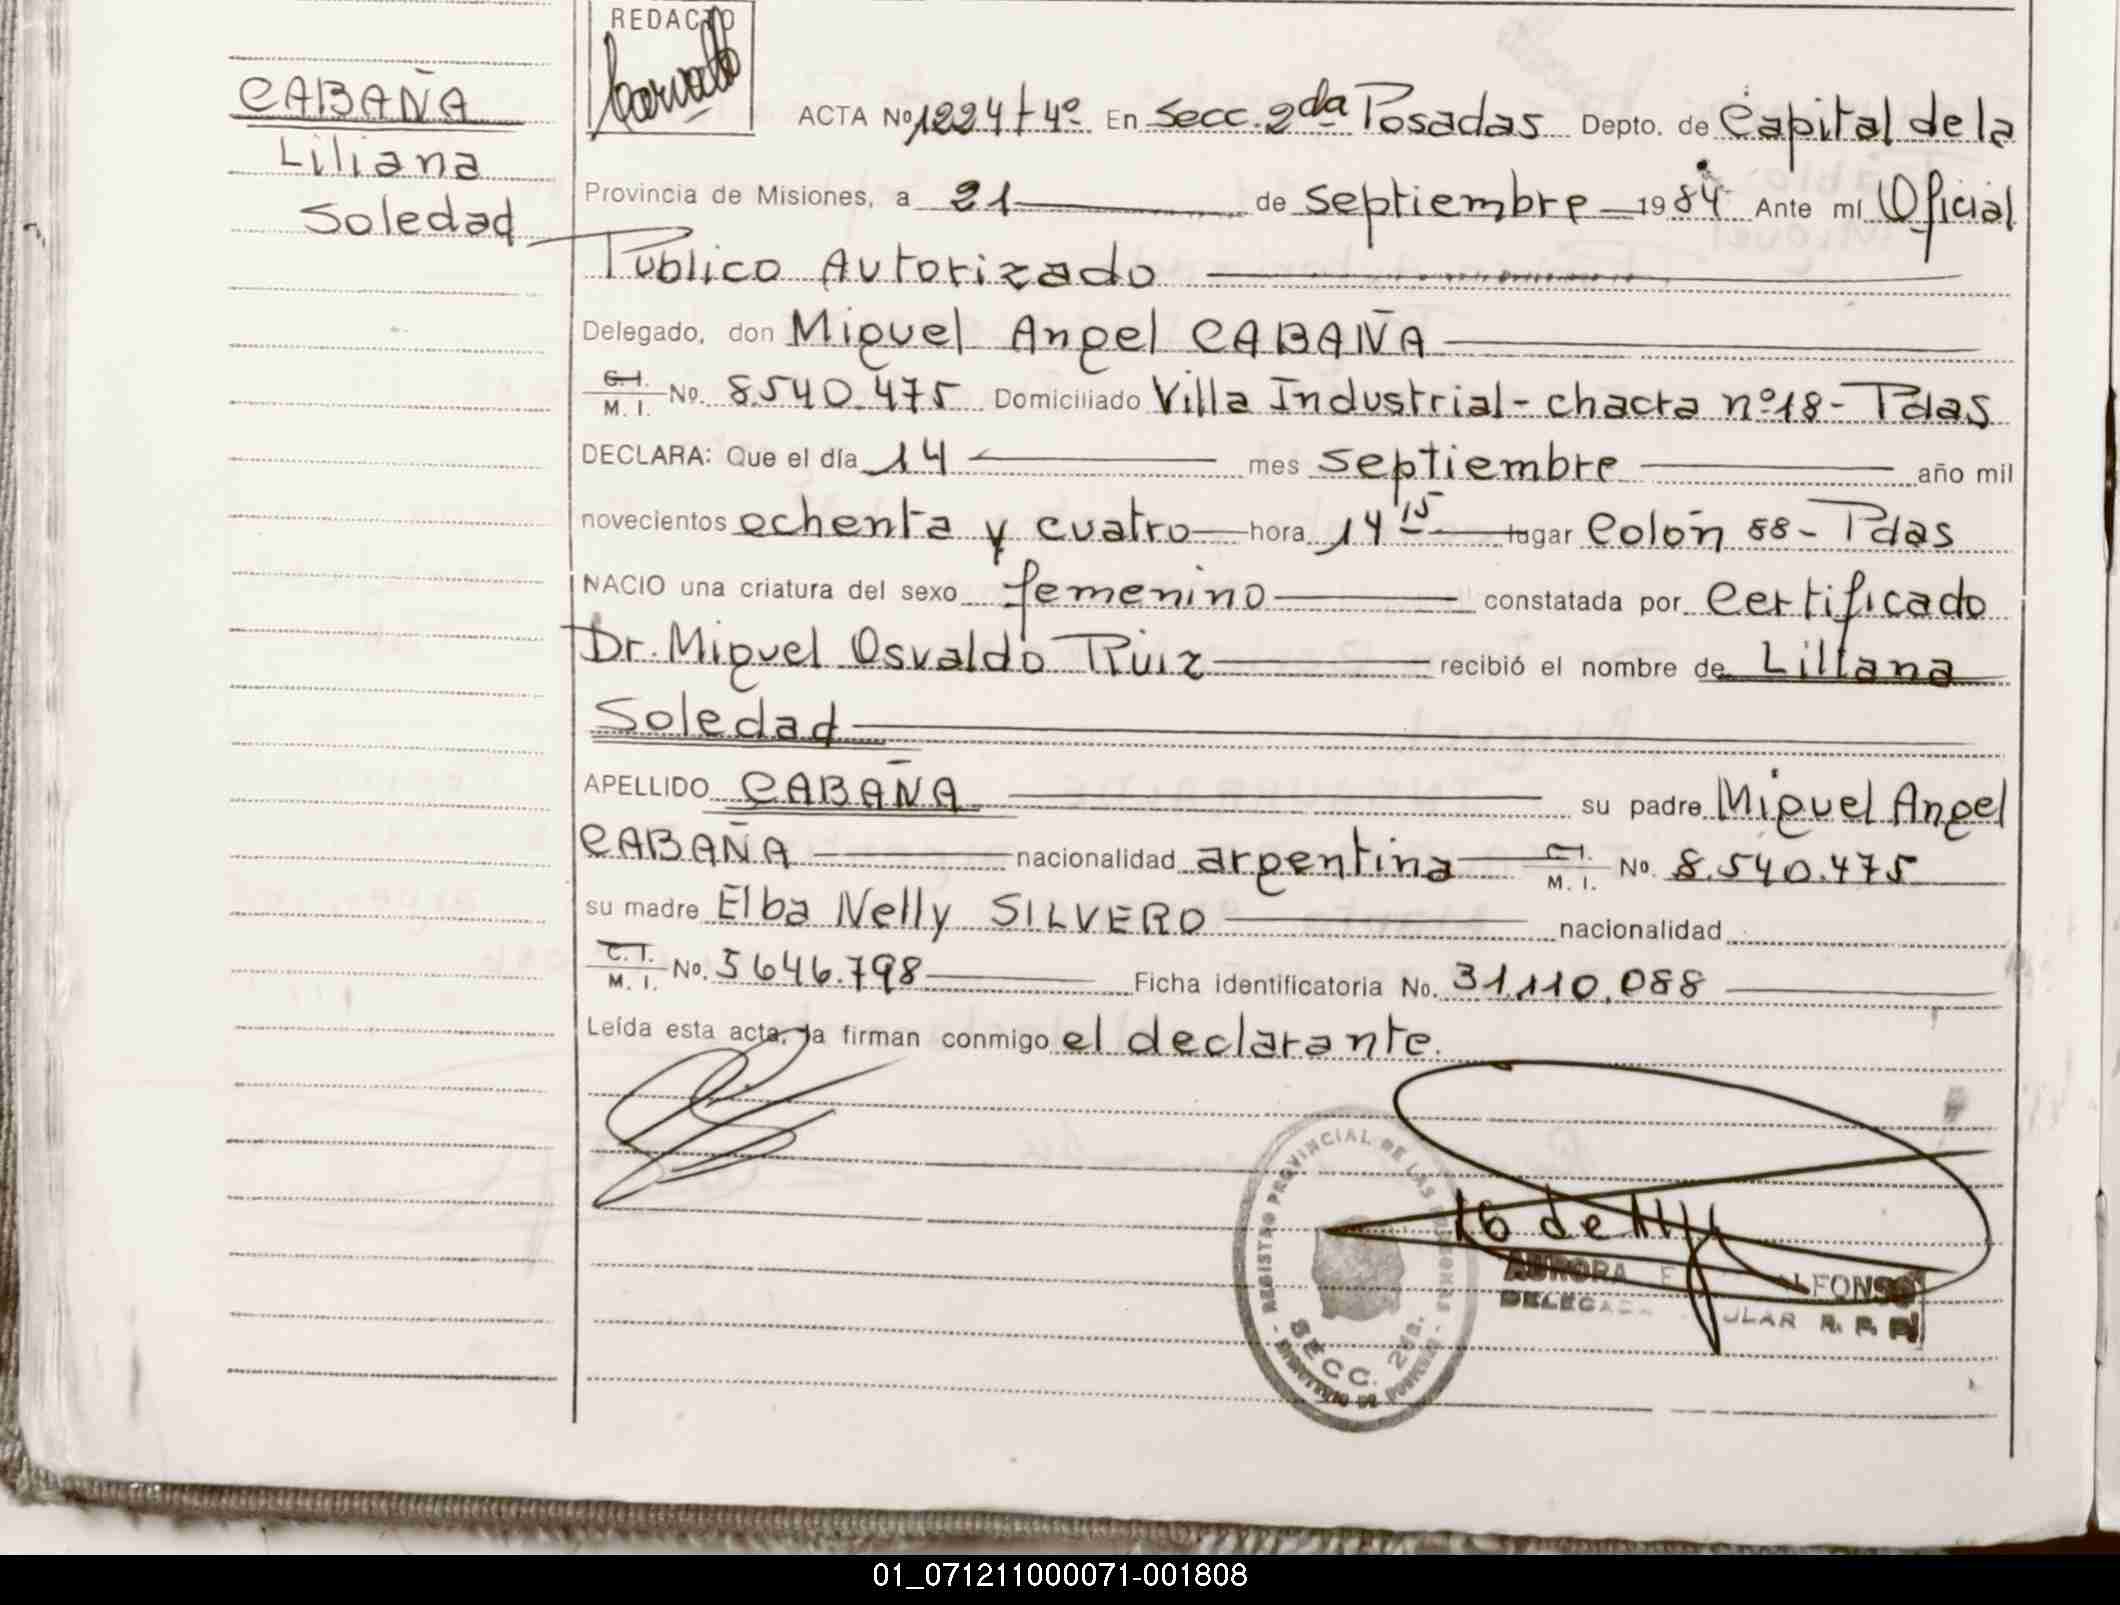 REDACTO
CABAÑA
Liliana
Soledad
ACTA Nº 1224 t 4º En Secc. 2da Posadas Depto. de Capital de la
Provincia de Misiones, a 21 de septiembre 1984 Ante mí Oficial
Público Autorizado
Delegado, don Miguel Angel CABAÑA
C.I. M. I. No. 8.540.475 Domiciliado Villa Industrial - chacra nº 18 - Pdas
DECLARA: Que el día 14 mes septiembre año mil
novecientos ochenta y cuatro hora 14 15 lugar Colón 88 - Pdas
NACIO una criatura del sexo femenino constatada por Certificado
Dr. Miguel Osvaldo Ruiz recibió el nombre de Liliana
Soledad
APELLIDO CABAÑA su padre Miguel Angel
CABAÑA nacionalidad argentina C.I. M. I. No. 8.540.475
su madre Elba Nelly SILVERO nacionalidad
C.I. M. I. No. 5646.798 Ficha identificatoria No. 31.110.088
Leída esta acta, la firman conmigo el declarante.
REGISTRO PROVINCIAL DE LAS PERSONAS
SECC. 2da.
AURORA ALFONSO
DELEGADA R. P. P.
01_071211000071-001808